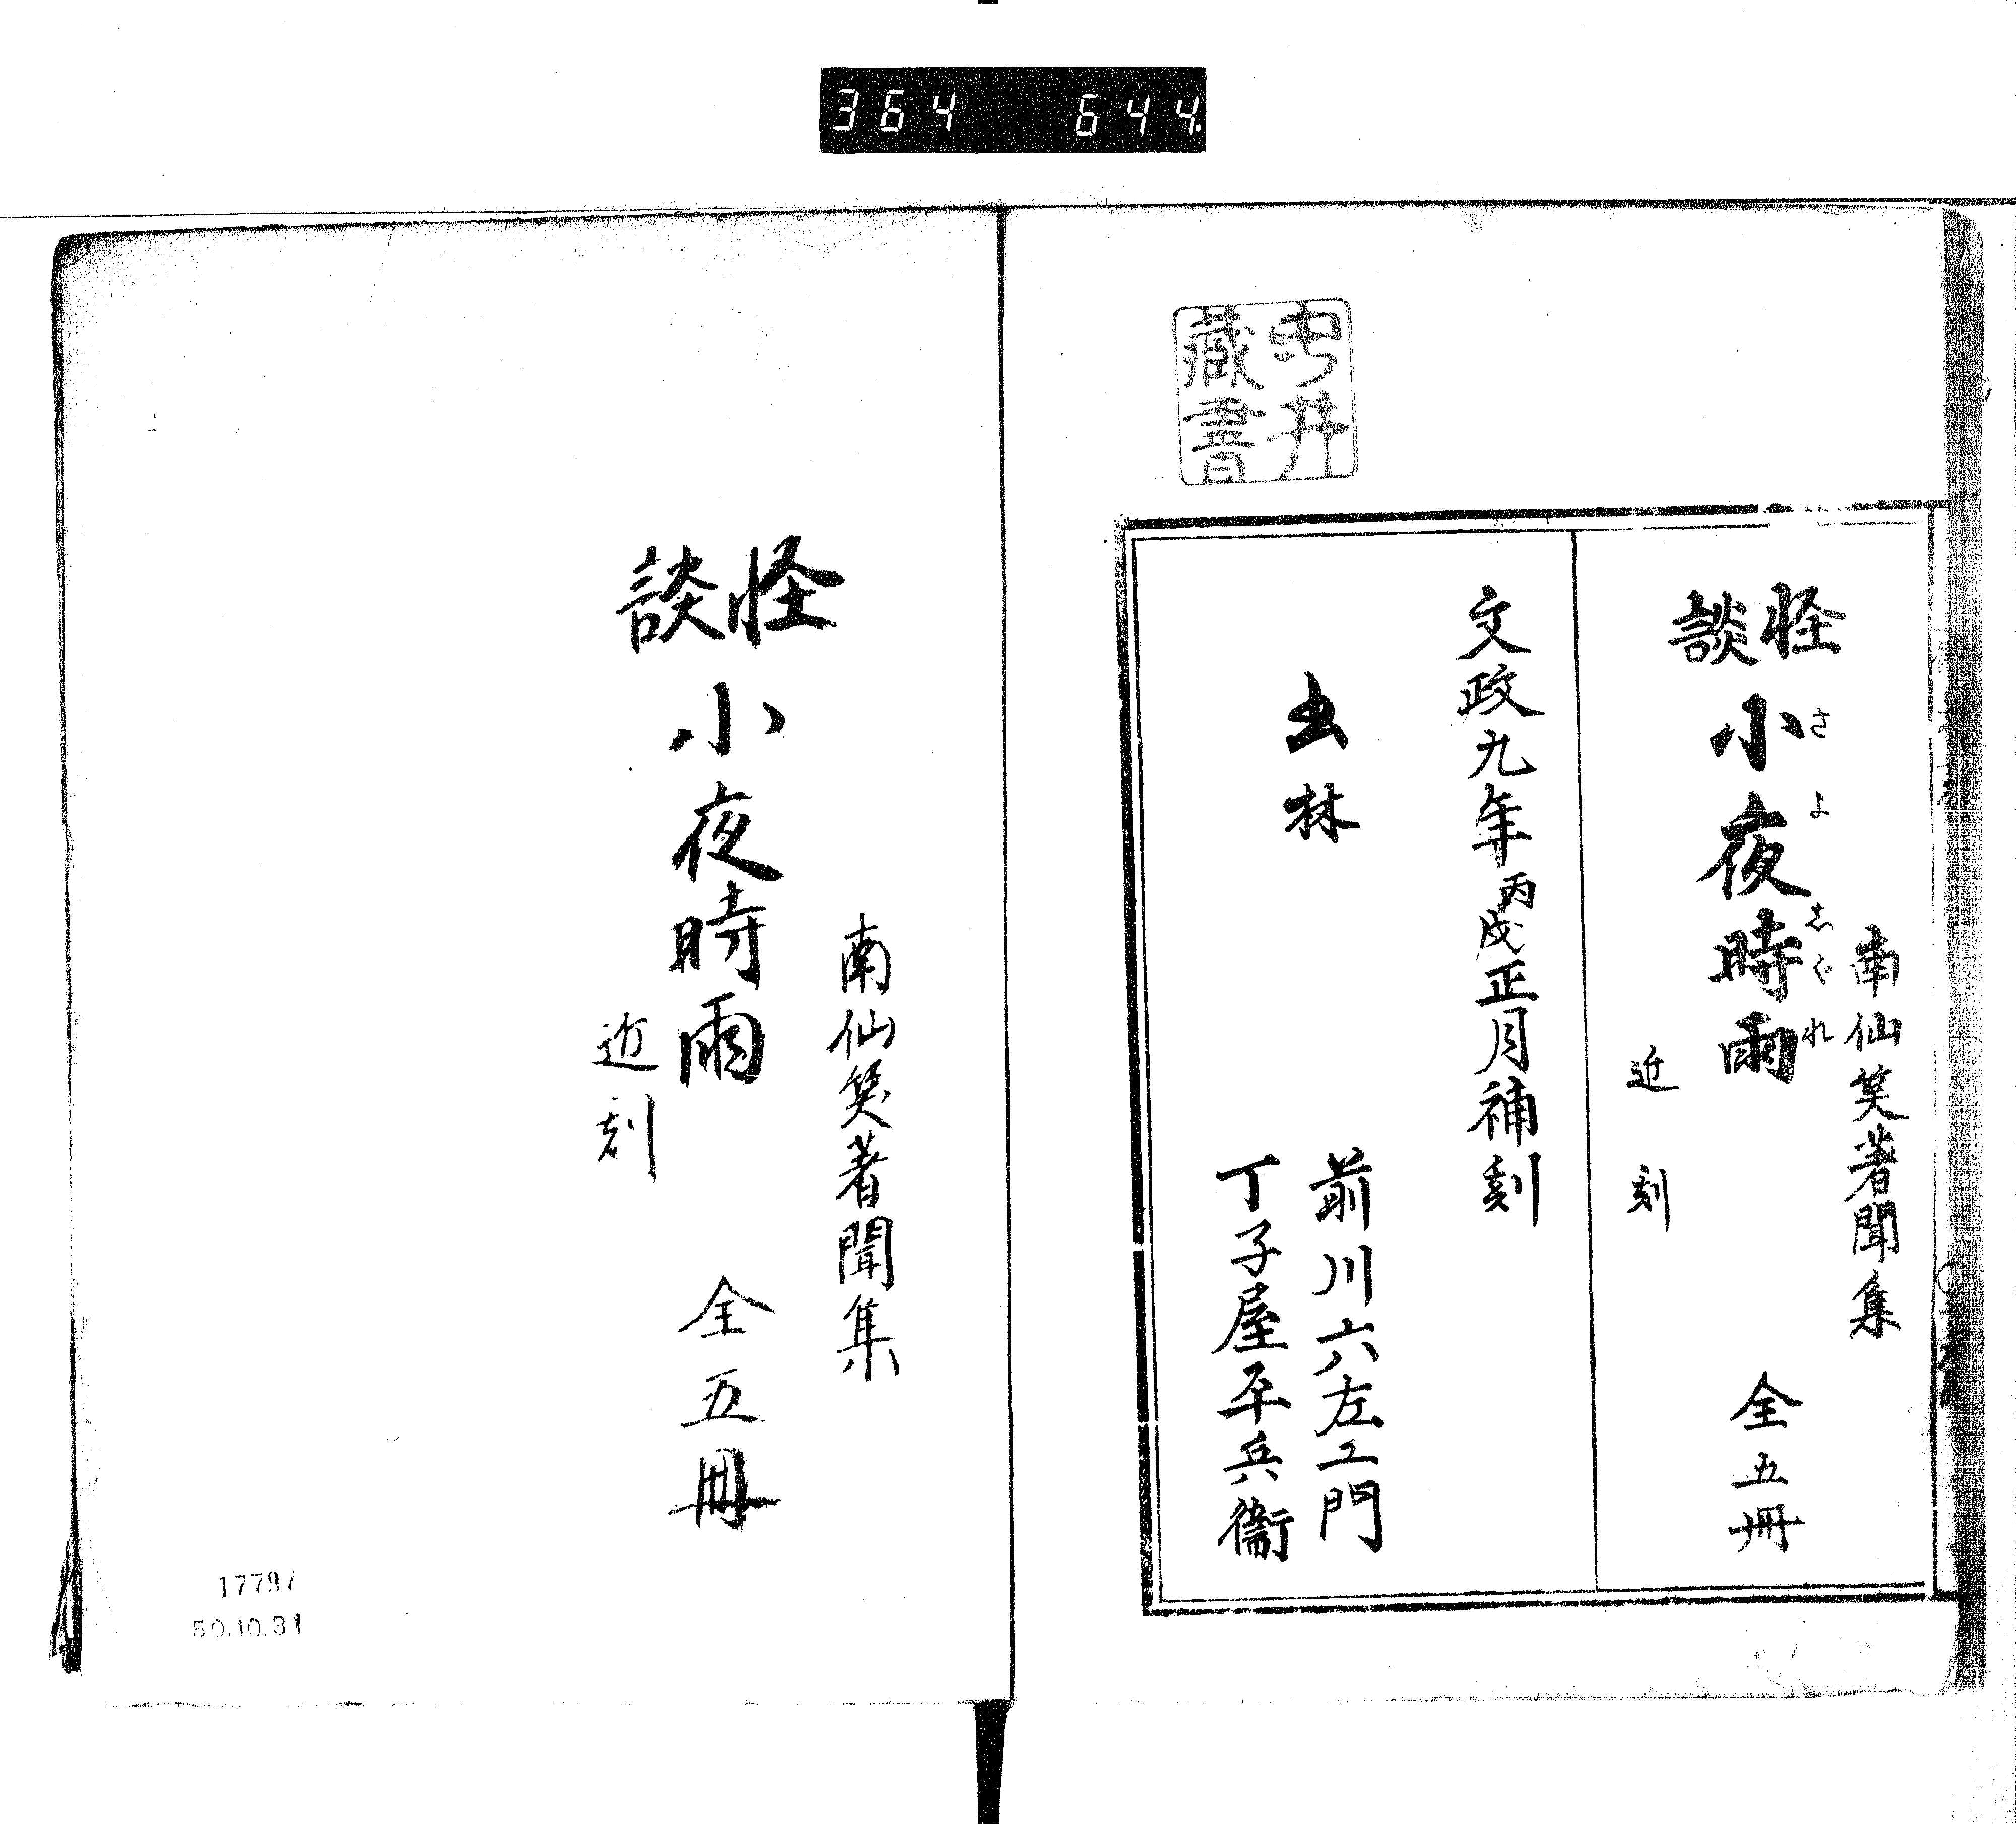 364 644
中井
藏書
南仙笑著聞集
怪談小夜時雨 全五冊
さよしぐれ
近刻
文政九年丙戌正月補刻
書林
前川六左エ門
丁子屋平兵衞
南仙笑著聞集
怪談小夜時雨 全五冊
近刻
50.10.31